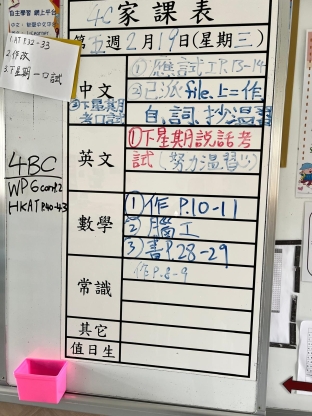 自主學習 網上平台
KAT P.32-33
2.作改
3.下星期一口試
4C家課表
第五週2月19日(星期三)
中文
①應試工P.13-14
②已派file上=作
③下星期考口試
自、詞、抄溫習
英文
①下星期說話考
試(努力溫習)
4BC
WPG comp2
HKAT P.40-43
數學
①作 P.10-11
②腦工
③書P.28-29
常識
作P.8-9
其它
值日生